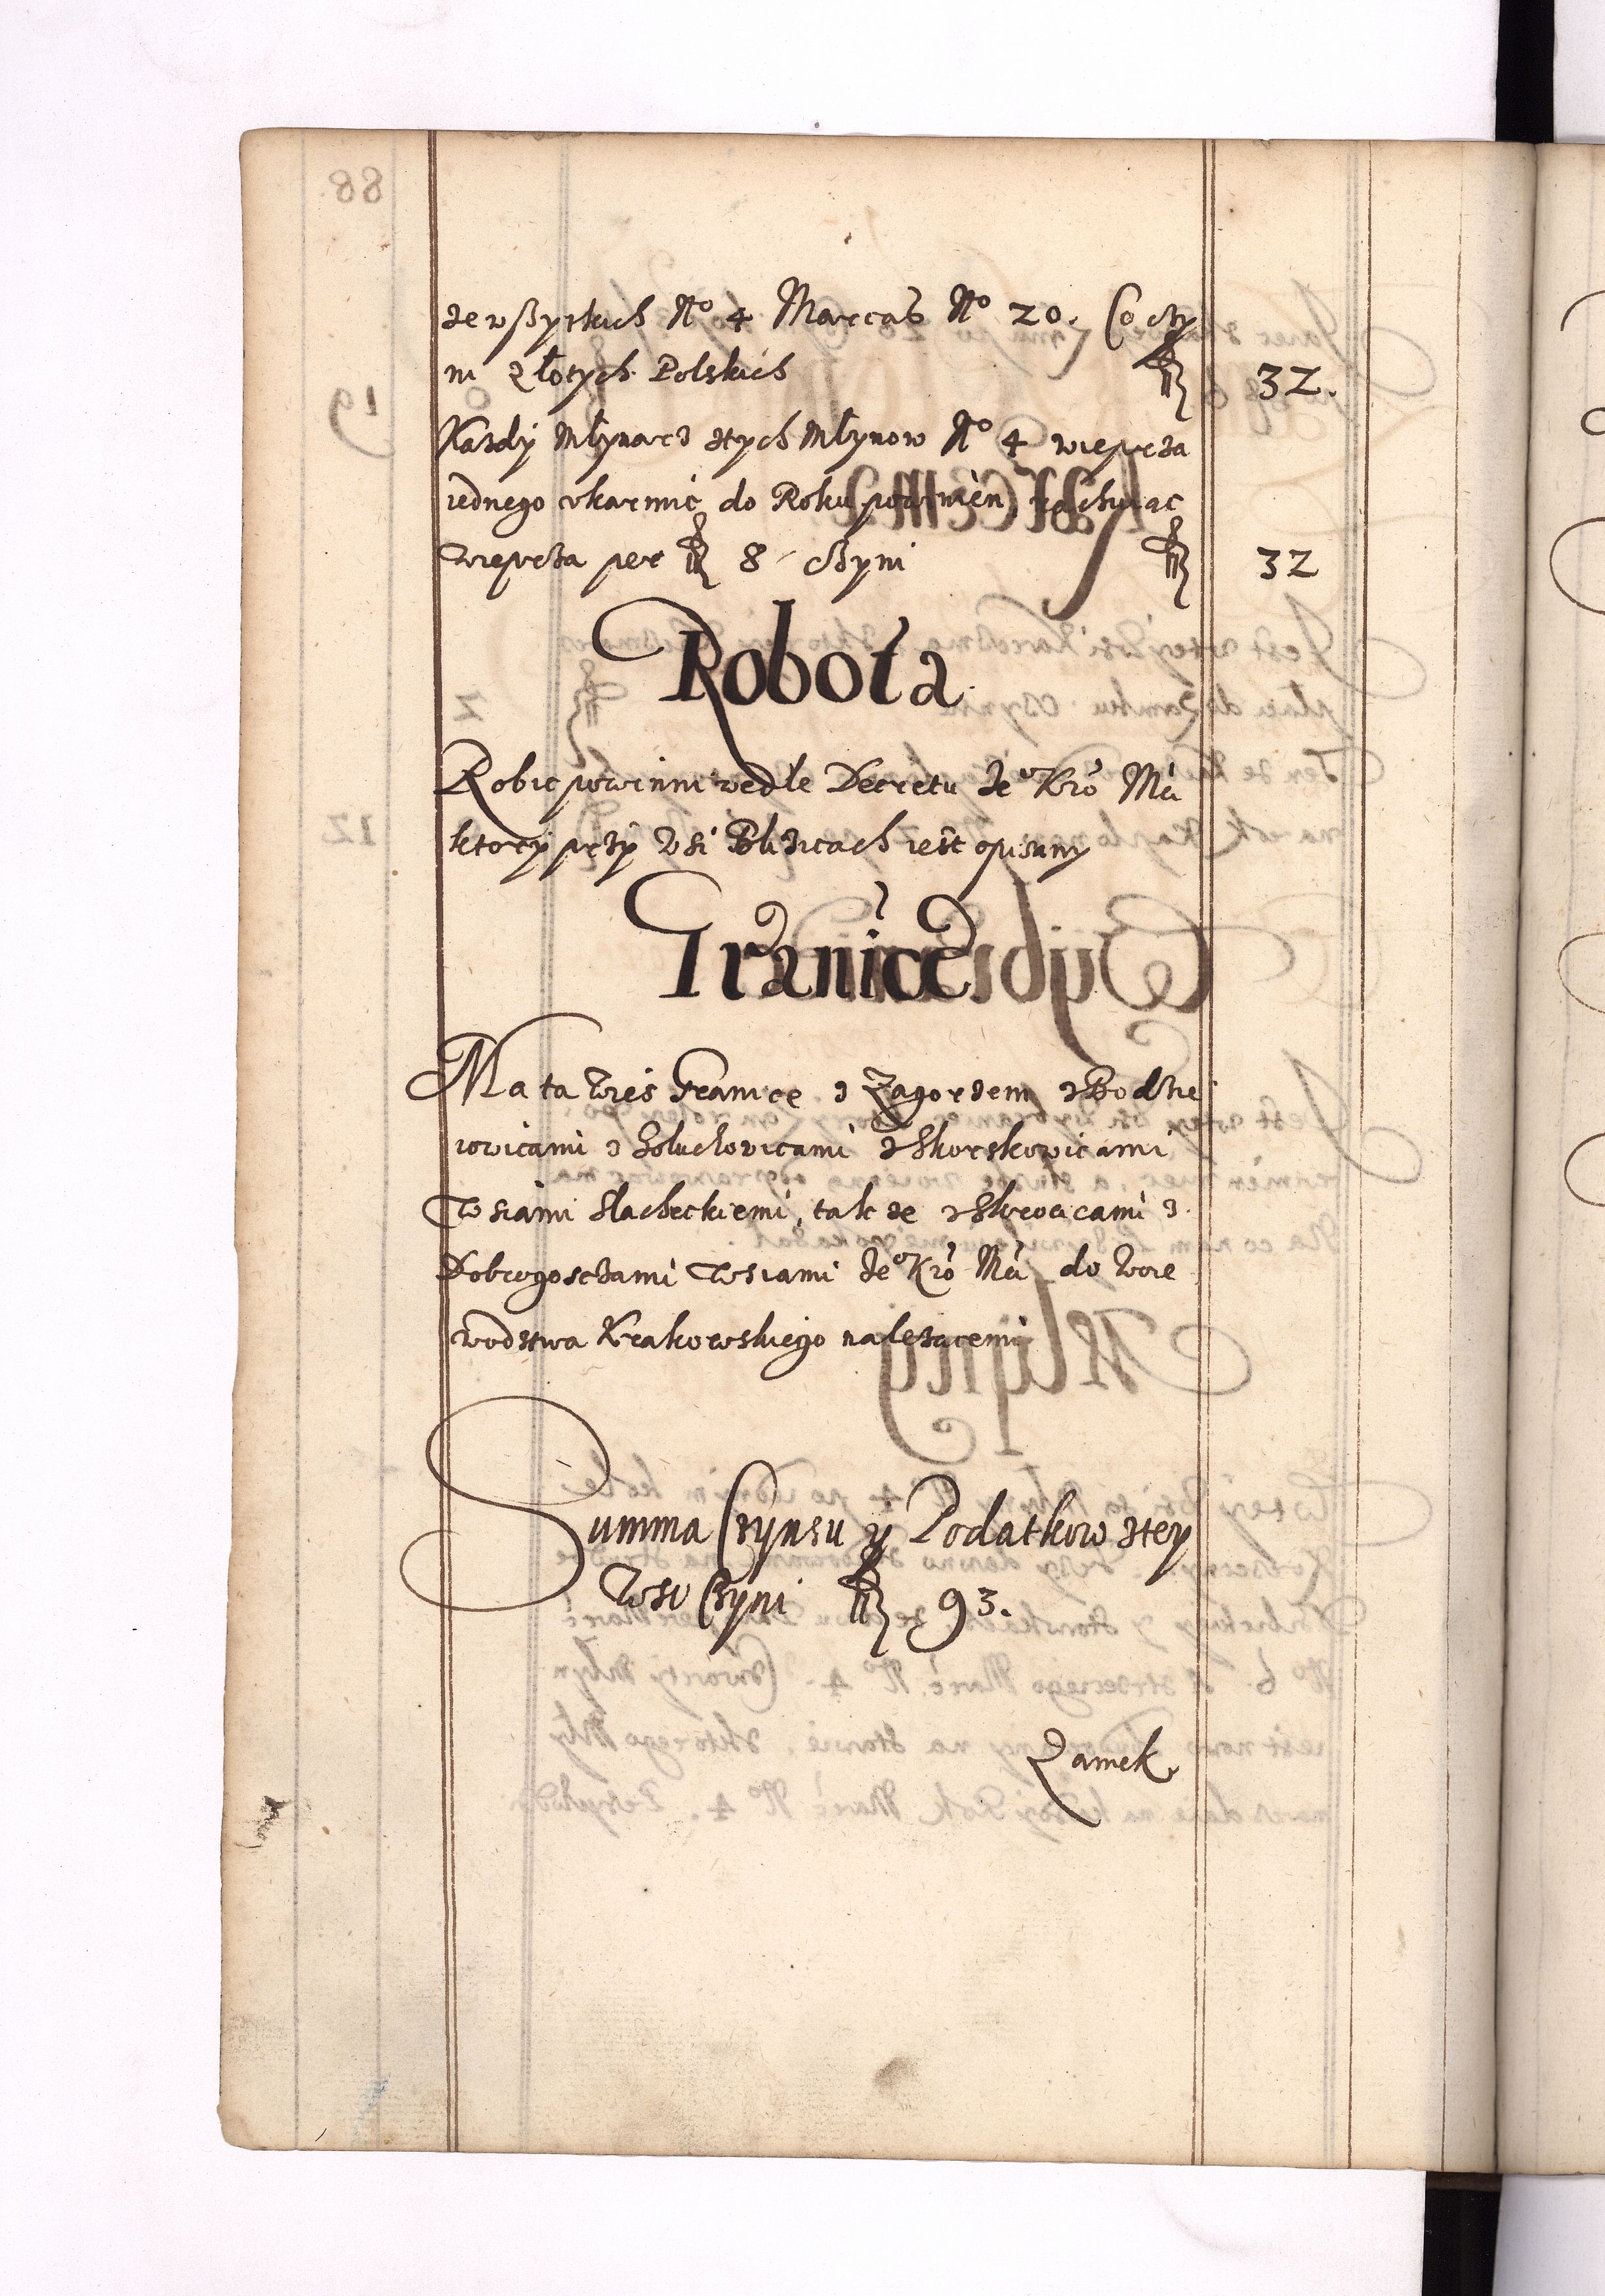 ze wßystkich No 4 Marcas No 20. Co czy
ni złotych Polskich fl 32.
Kazdy Młynarz stych Młynow No 4 wieprza
iednego vkarmić do Roku powinien, rachuiac
wieprza per fl 8 czyni fl 32
Robota
Robic powinni wedle Decretu Je° Kro Mci
ktory przy Wsi Blizicach iest opisany
Granice
Ma ta Wies Granice z Zagorzem z Bodzie
iowicami z Goluchowicami z Skorskowicami
Wsiami slacheckiemi, tak ze z Skrocicami z
Dobrogosczami Wsiami Je° Kro Mci do Woie
wodztwa Krakowskiego nalezacemi
Summa Czynsu y Podatkow stey
Wsi Czyni fl 93.
Zamek